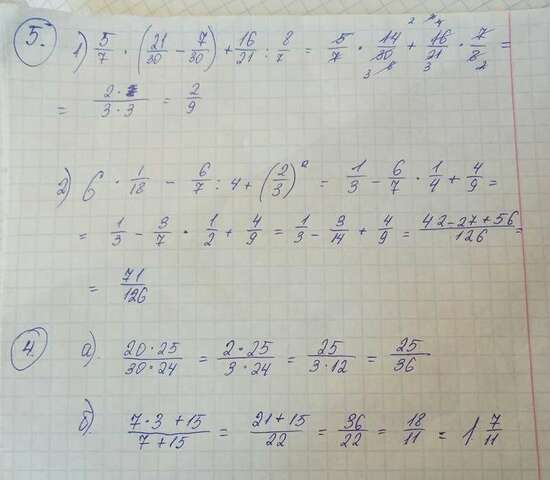 5. 1) 5/7 · (21/30 − 7/30) + 16/21 : 8/7 = 5/7 · 14/30 + 16/21 · 7/8 =
= 2·2/3·3 = 2/9
2) 6 · 1/18 − 6/7 : 4 + (2/3)² = 1/3 − 6/7 · 1/4 + 4/9 =
= 1/3 − 3/7 · 1/2 + 4/9 = 1/3 − 3/14 + 4/9 = 42−27+56/126 =
= 71/126
4. а). 20·25/30·24 = 2·25/3·24 = 25/3·12 = 25/36
б). 7·3+15/7+15 = 21+15/22 = 36/22 = 18/11 = 1 7/11